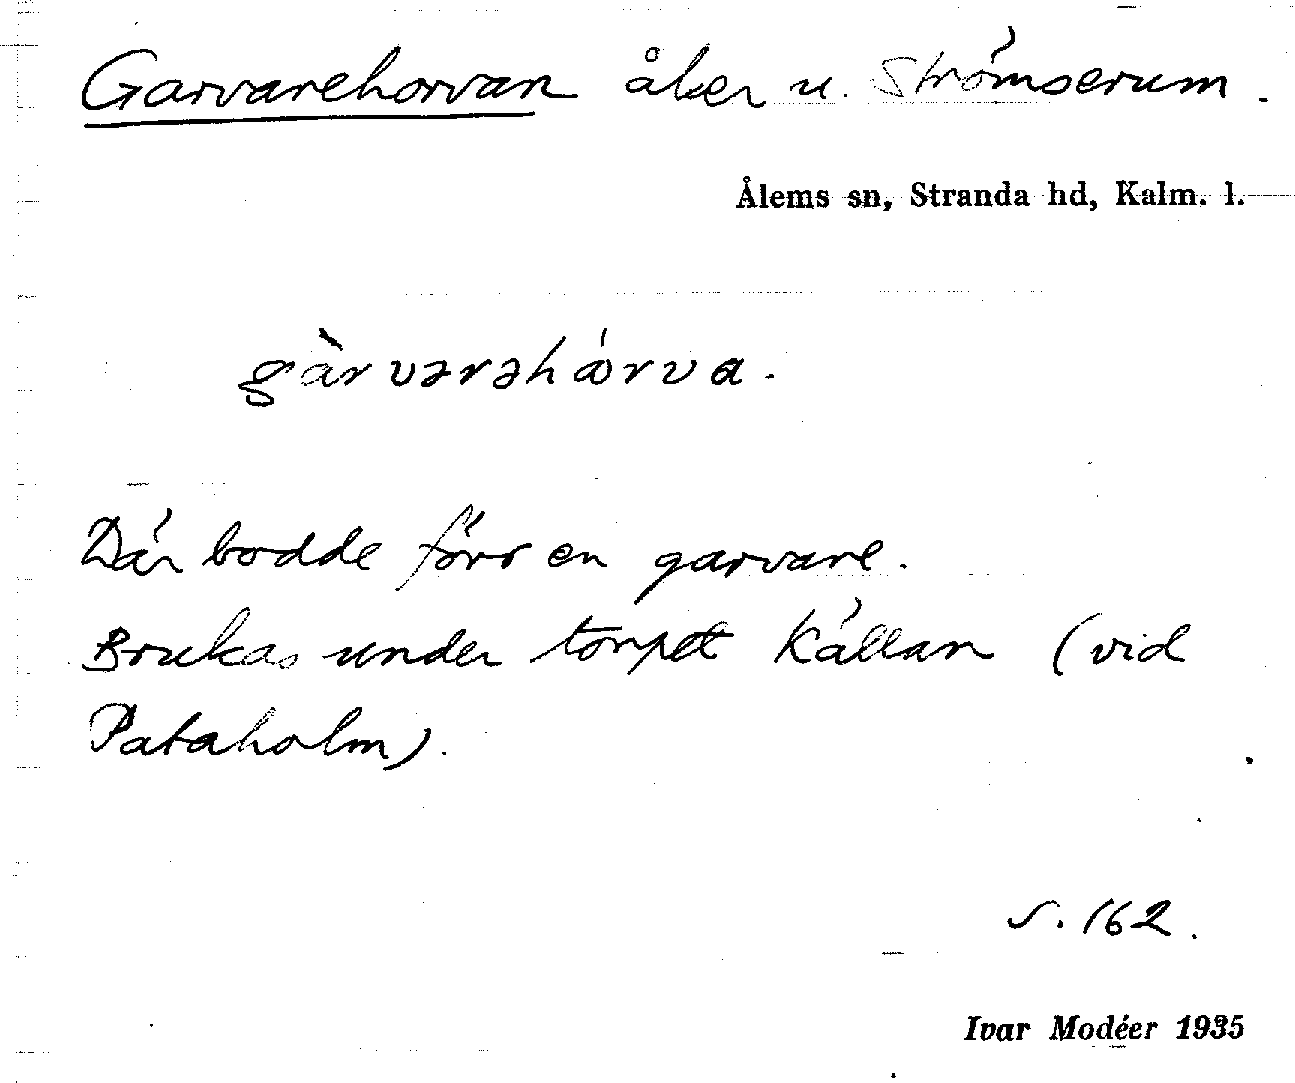 Garvarehorvan åker u. Strömserum.
Ålems sn, Stranda hd, Kalm. l.
gàrvərəhǻrva.
Där bodde förr en garvare.
Brukas under torpet Källan (vid
Pataholm).
s. 162.
Ivar Modéer 1935